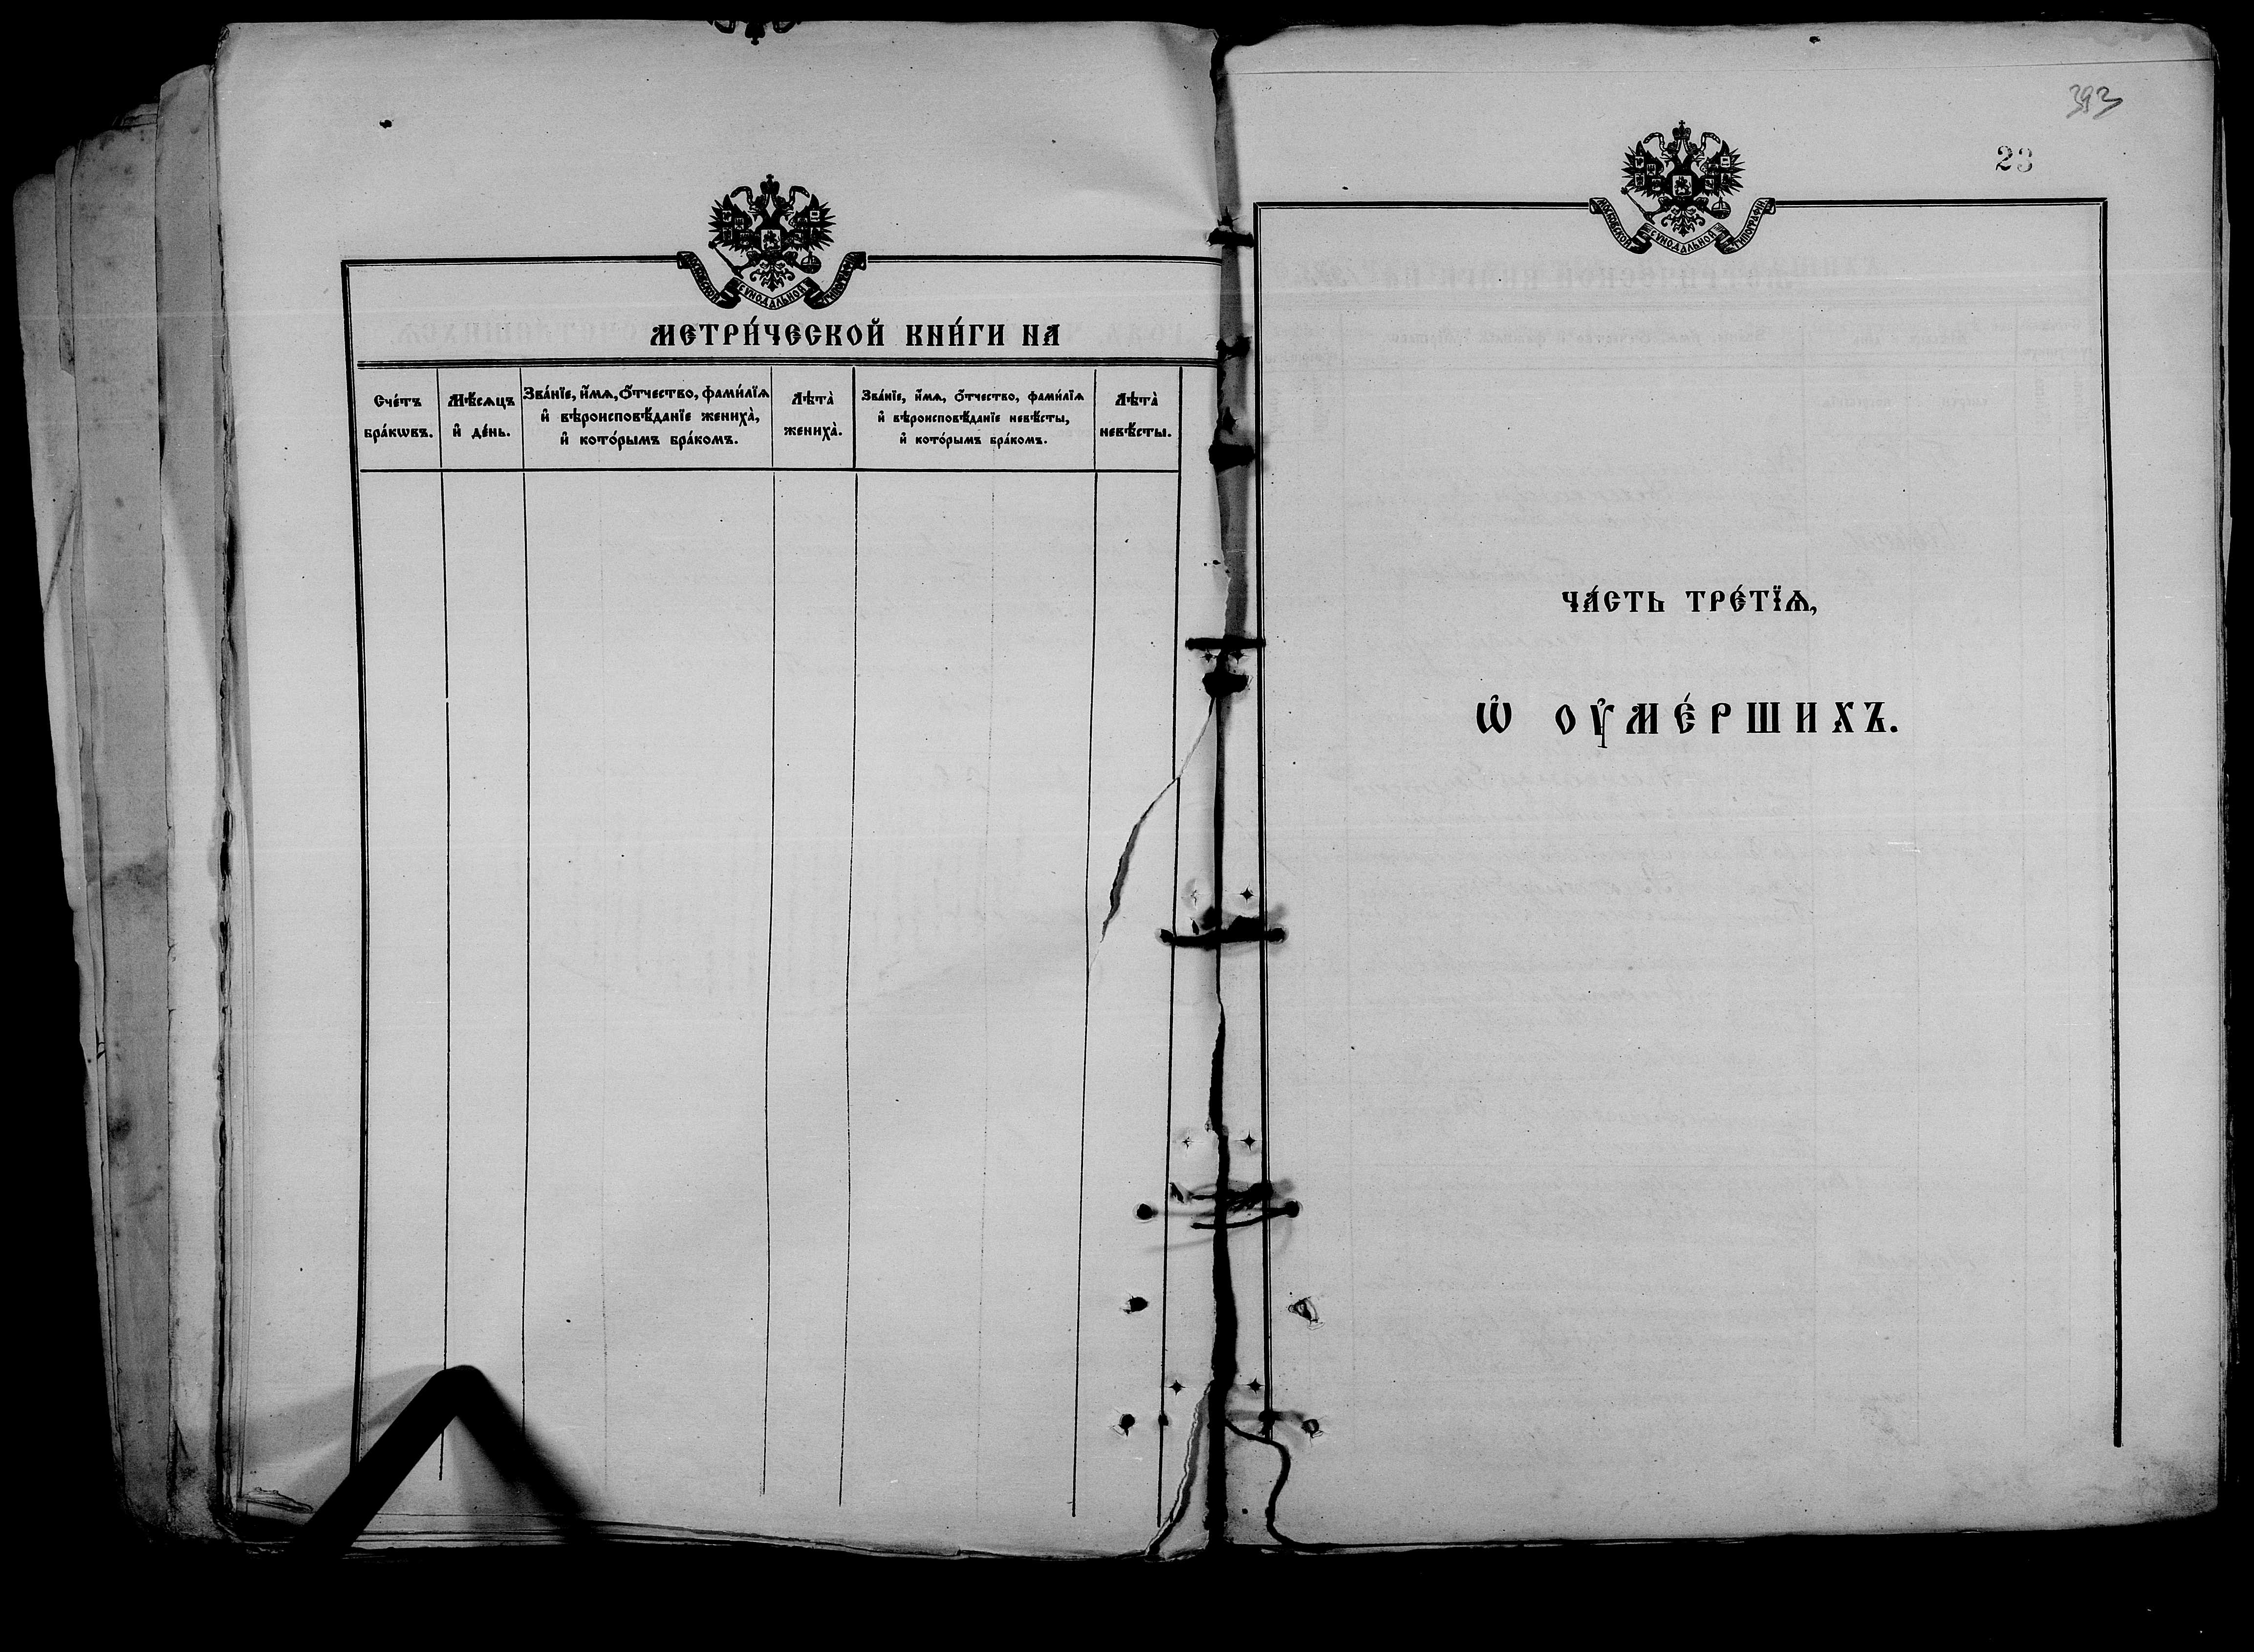 МОСКОВСКОЙ СѴНОДАЛЬНОЙ ТИПОГРАФІИ
МЕТРИ́ЧЕСКОЙ КНИ́ГИ НА
Сче́тъ
бра́кѡвъ.
Мѣ́сѧцъ
и҆ де́нь.
Зва́нїе, и҆́мѧ, ѻ҆́тчество, фами́лїѧ
и҆ вѣроисповѣ́данїе жениха̀,
и҆ кото́рымъ бра́комъ.
Лѣта̀
жениха̀.
Зва́нїе, и҆́мѧ, ѻ҆́тчество, фами́лїѧ
и҆ вѣроисповѣ́данїе невѣ́сты,
и҆ кото́рымъ бра́комъ.
Лѣта̀
невѣ́сты.
393
23
МОСКОВСКОЙ СѴНОДАЛЬНОЙ ТИПОГРАФІИ
ЧА́СТЬ ТРЕ́ТЇѦ,
Ѡ҆ ОУ҆МЕ́РШИХЪ.